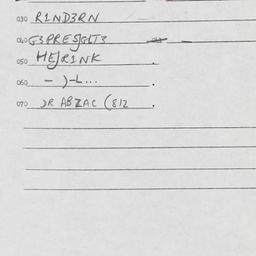 030 R1ND3RN
040 G3PRESJGLT3
050 HEJR1NK
060 - )-L...
070 JR ABZAC (812